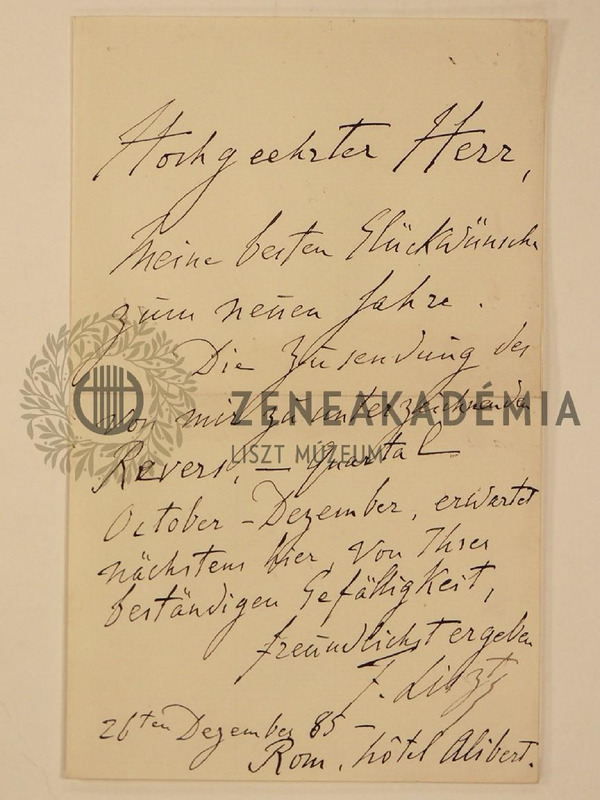 Hochgeehrter Herr,
Meine besten Glückwünsche
zum neuen Jahre.
Die Zusendung des
von mir zu unterzeichnenden
Revers, – Quartal
October – Dezember, erwartet
nächstens hier, von Ihrer
beständigen Gefälligkeit,
freundlichst ergeben
F. Liszt
26ten Dezember 85 –
Rom, hôtel Alibert.
ZENEAKADÉMIA
LISZT MÚZEUM